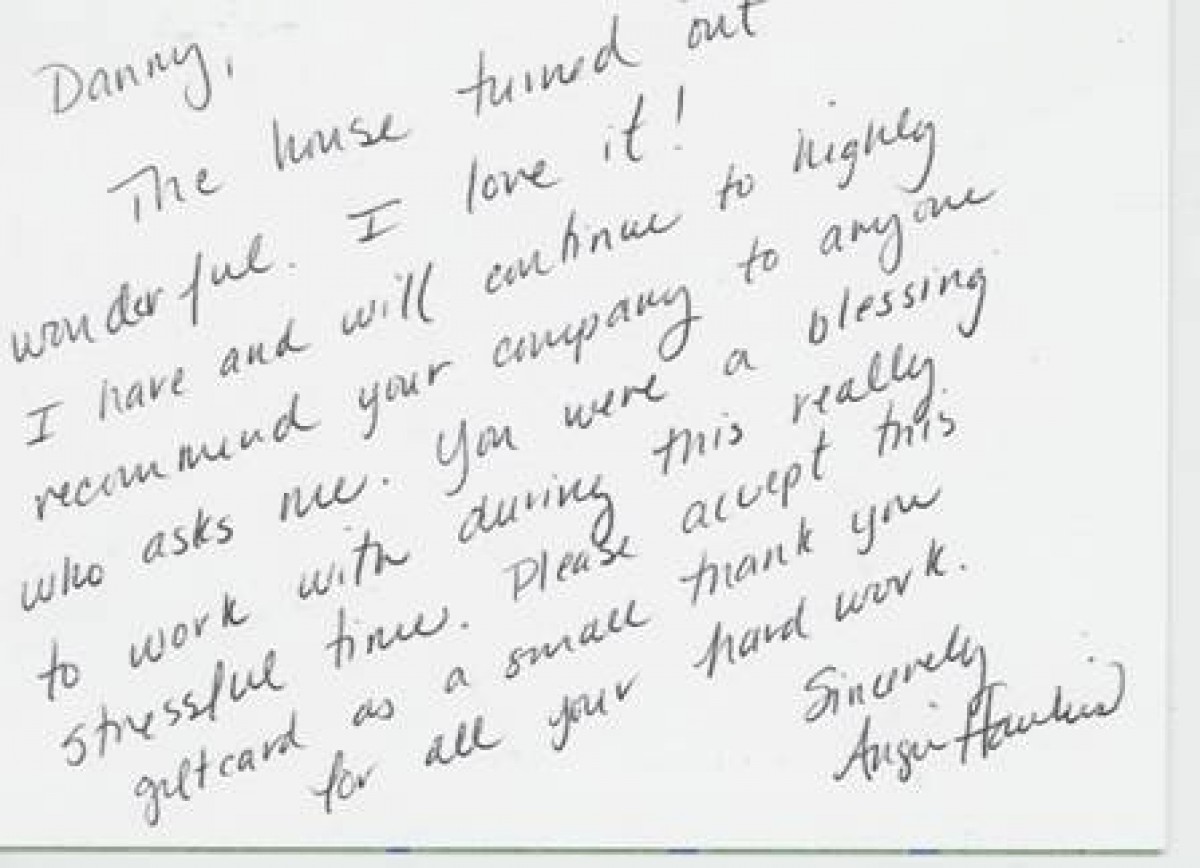 Danny,
The house turned out
wonderful. I love it!
I have and will continue to highly
recommend your company to anyone
who asks me. You were a blessing
to work with during this really
stressful time. Please accept this
giftcard as a small thank you
for all your hard work.
Sincerely
Angie Hawkins